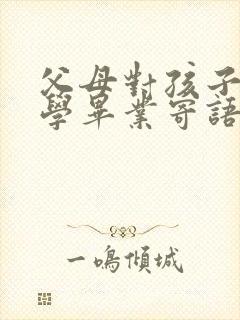 父母對孩子
學畢業寄語
一鳴傾城